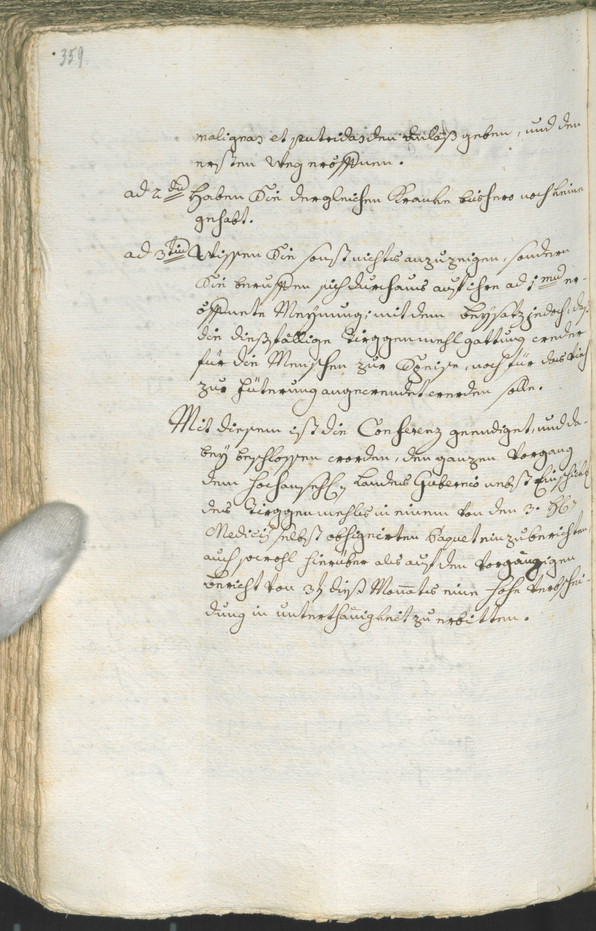 359.
malignas et putridas den Anlaß geben, und den
ersten Weg eröffnen.
ad 2dum Haben Sie dergleichen Kranke bishero noch keine
gehabt.
ad 3tium Wissen Sie sonst nichts anzuzeigen, sondern
Sie beruffen sich durchaus auf ihre ad 1mum er-
öffnete Meynung; mit dem Beysatz jedoch, daß
die dießfällige Türggenmehl gattung weeder
für die Menschen zur Speise, noch für das Vieh
zur Füterung angewendet werden solle.
Mit diesem ist die Conferenz geendiget, und da-
bey beschlossen worden, den ganzen Vorgang
dem Hochansehl. Landes Gubernio nebst Einschickung
des Türggenmehls in einem von den 3. HH.
Medicis selbst obsignirten Paquet einzuberichten
auch sowohl hierüber als auf den vorgängigen
Bericht von 3t. dieß Monats eine hohe Verbschei-
dung in unterthänigkeit zu erbitten.